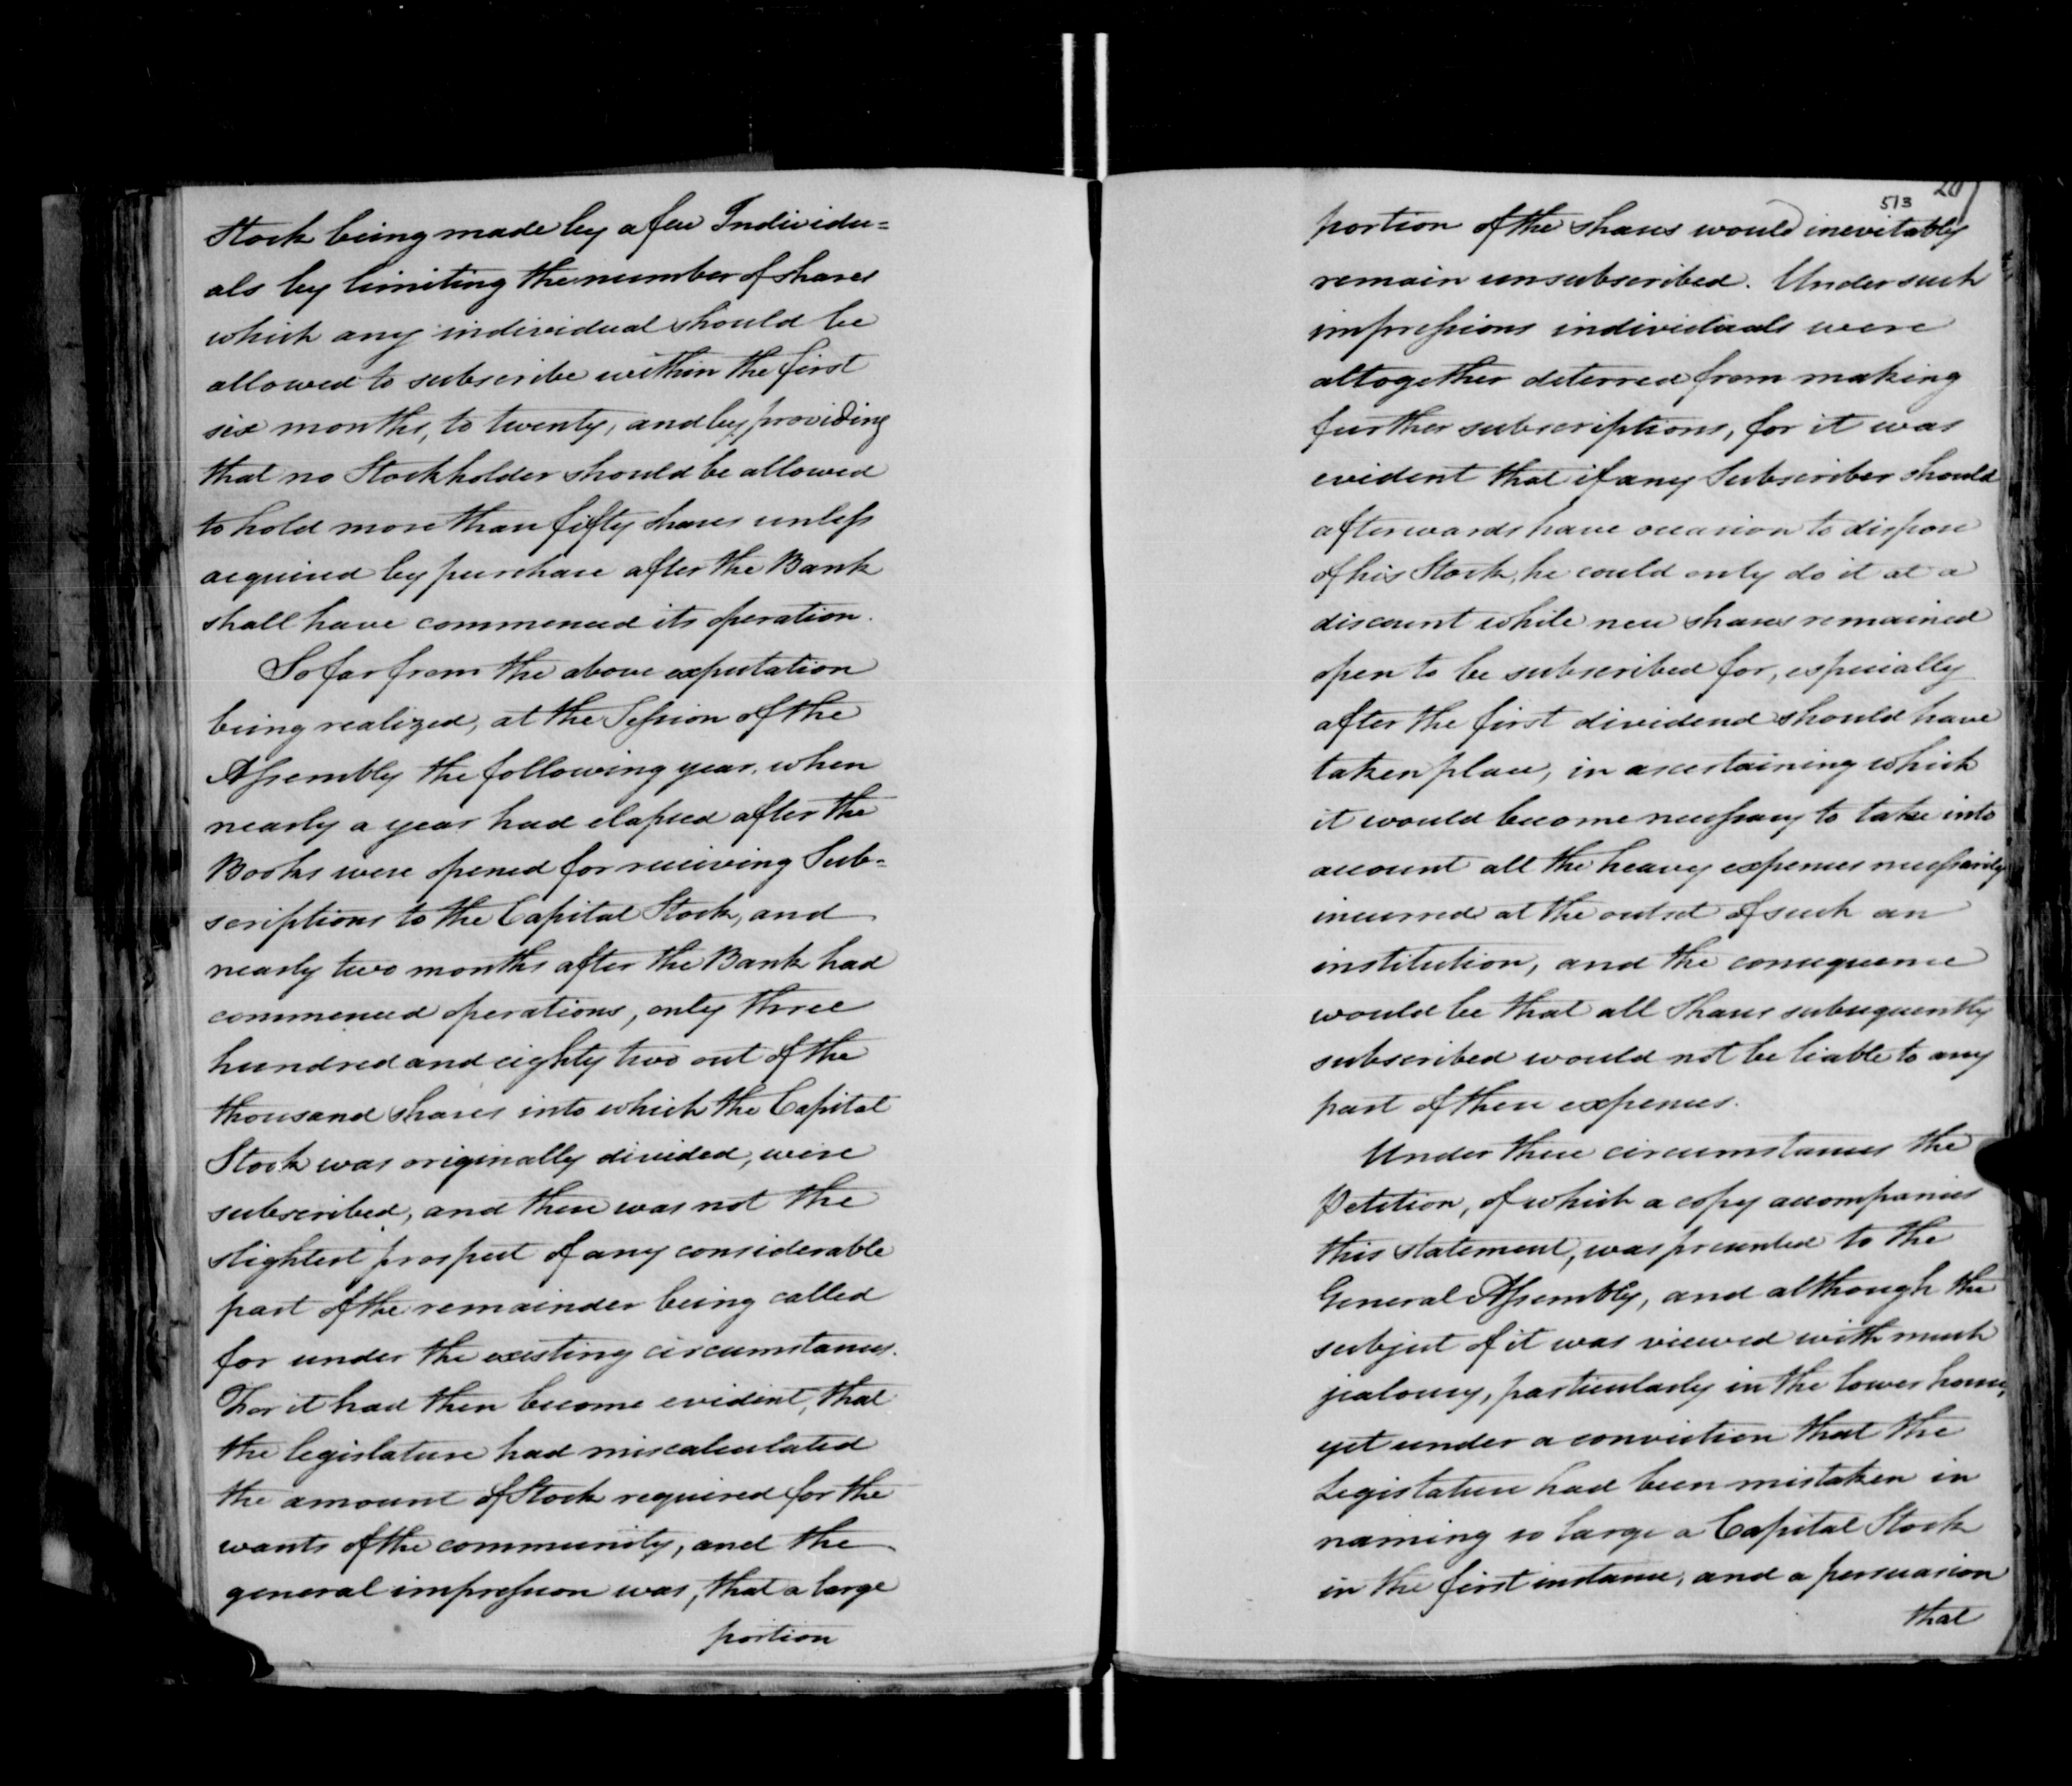 Stock being made by a few Individu=
als by limiting the number of shares
which any individual should be
allowed to subscribe within the first
six months, to twenty, and by providing
that no Stockholder should be allowed
to hold more than fifty shares unless
acquired by purchase after the Bank
shall have commenced its operation.
So far from the above expectation
being realized, at the Session of the
Assembly the following year, when
nearly a year had elapsed after the
Books were opened for receiving Sub=
scriptions to the Capital Stock, and
nearly two months after the Bank had
commenced operations, only three
hundred and eighty two out of the
thousand shares into which the Capital
Stock was originally divided, were
subscribed, and there was not the
slightest prospect of any considerable
part of the remainder being called
for under the existing circumstances.
For it had then become evident, that
the legislature had miscalculated
the amount of Stock required for the
wants of the community, and the
general impression was, that a large
portion
513
portion of the shares would inevitably
remain unsubscribed. Under such
impressions individuals were
altogether deterred from making
further subscriptions, for it was
evident that if any Subscriber should
afterwards have occasion to dispose
of his Stock, he could only do it at a
discount while new shares remained
open to be subscribed for, especially
after the first dividend should have
taken place, in ascertaining which
it would become necessary to take into
account all the heavy expenses necessarily
incurred at the outset of such an
institution, and the consequence
would be that all shares subsequently
subscribed would not be liable to any
part of these expenses.
Under these circumstances the
Petition, of which a copy accompanies
this statement, was presented to the
General Assembly, and although the
subject of it was viewed with much
jealousy, particularly in the lower house,
yet under a conviction that the
Legislature had been mistaken in
naming so large a Capital Stock
in the first instance, and a persuasion
that